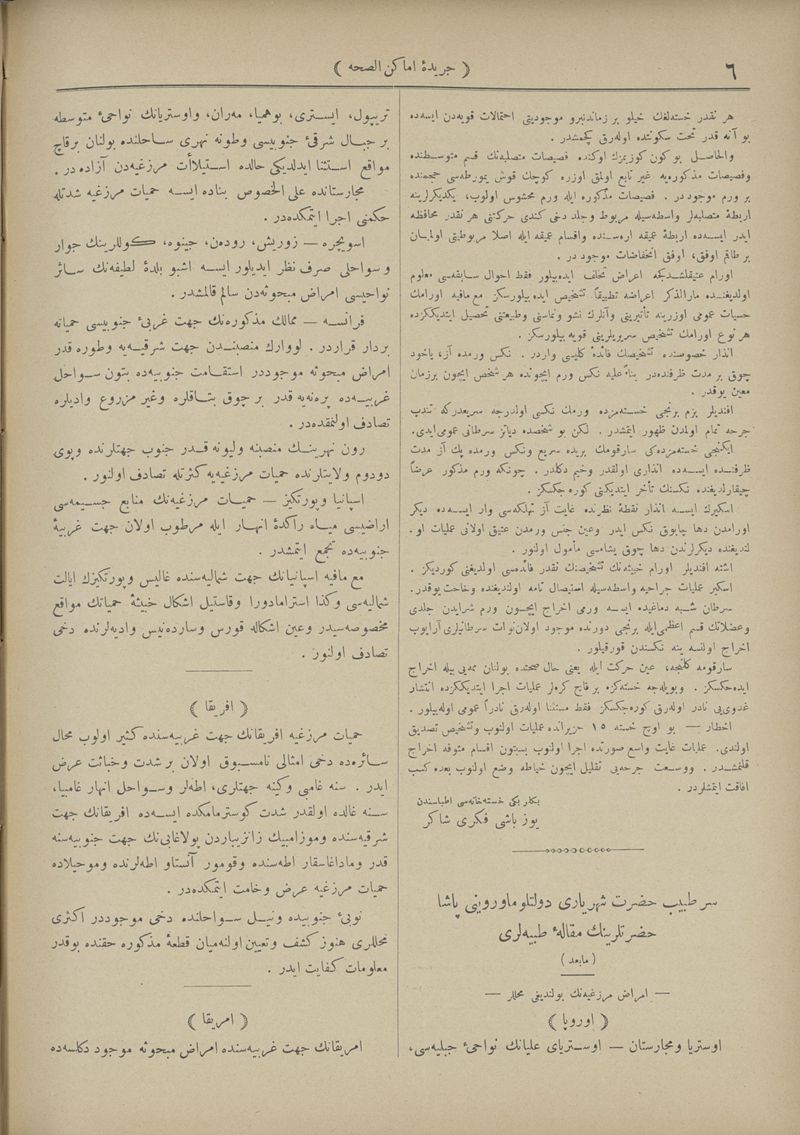 ٦
﴿ جریدۀ اماكن الصحه ﴾
هر نقدر خسته‌لغك خیلو بر زماندنبرو موجودیتی احتمالات قویه‌دن ایسه‌ده
بو آنه قدر تحت سكوننده اوله‌رق كچمشدر .
والحاصل بو كون كوزیمزك اوكنده قصیصات متصلبه‌نك قسم متوسطنده
وقصیصات مذكوره‌یه غیر تابع اولمق اوزره كوچك قوش یمورطه‌سی حجمنده
بر ورم موجوددر . قصیصات مذكوره ایله ورم محشوس اولوب، یكدیكرلرینه
اربطۀ متصلبه‌لر واسطه‌سیله مربوط وجلد دخی كندی حركتنی هر نقدر محافظه
ایدر ایسه‌ده اربطۀ عمیقه اره‌سنده واقسام عمیقه ایله اصلا مربوطیتی اولمیان
بر طاقم اوفق، اوفق انخفاضات موجوددر .
اورام عتیقلشدكجه اعراض تخلف ایده‌بیلور فقط احوال سابقه‌سی معلوم
اولدیغنده مارالذكر اعراضه تطبیقاً تشخیص ایده بیلورسكز مع مافیه اورامك
حسیات عمومی اوزرینه تأثیرینی وآنلرك نشو ونماسنی وطبیعتنی تحصیل ایتدیككزده
هر نوع اورامك تشخیص سریریلرینی قویه بیلورسكز .
انذار خصوصنده تشخیصك فائدۀ كلیسی واردر . نكس ورمده آز، یاخود
چوق بر مدت ظرفنده‌در بناءً علیه نكس ورم ایچونده هر شخص ایچون برزمان
معین یوقدر .
افندیلر بزم برنجی خسته‌مزده ورمك نكسی اولدرجه سریعدركه تندب
جرحه تمام اولمدن ظهور ایتمشدر . لكن بو شخصده دیاتز سرطانی عمومی‌ایدی.
ایكنجی خسته‌مزده‌كی سارقومك بریده سریع ونكس ورمده پك آز مدت
ظرفنده ایسه‌ده انذاری اولقدر وخیم دكلدر . چونكه ورم مذكور عرضاً
چیقارلدیغنده نكسنك تأخر ایتدیكنی كوره جكسكز .
اسكیرك ایسه انذار نقطۀ نظرنده غایت آز تهلكه‌سی وار ایسه‌ده دیكر
اورامدن دها چابوق نكس ایدر وعین جنس ورمدن عتیق اولانی عملیات او-
لندیغنده دیكرلرندن دها چوق یشامسی مأمول اولنور .
اشته افندیلر اورام خبیثه‌نك تشخیصنك نقدر فائده‌سی اولدیغنی كوردیكز .
اسكیر عملیات جراحیه واسطه‌سیله استیصال تامه اولندیغنده وخامت یوقدر.
سرطان شبه دماغیده ایسه ورمی اخراج ایچون ورم شرایدن جلدی
وعضلاتك قسم اعظمی‌ایله برنجی دورنده موجود اولان‌نوات سرطانیلری آرایوب
اخراج اولنسه ینه نكسندن قورقیلور .
سارقومه كلنجه، عین حركت ایله یعنی حال صحتده بولنان ممه‌یی بیله اخراج
ایده‌جكسكز . وبویله‌جه خسته‌كزه بر قاچ كره‌لر عملیات اجرا ایتدیككزده انتشار
غدوی‌یی نادر اوله‌رق كوره‌جكسكز فقط مستثنا اوله‌رق نادراً عمومی اوله‌بیلور .
اخطار — بو اوچ خسته ١٥ حزیرانده عملیات اولنوب وتشخیص تصدیق
اولندی. عملیات غایت واسع صورتده اجرا اولنوب بستون اقسام مئوفه اخراج
قلنمشدر . ووسعت جرحه‌یی تقلیل ایچون خیاطه وضع اولنوب بعده كسب
افاقت ایتمشلردر .
بكلر بكی خسته‌خانه‌سی اطباسندن
یوز باشی فكری شاكر
سر طبیب حضرت شهریاری دولتلو ماوروینی پاشا
حضرتلرینك مقالۀ طبیه‌لری
( مابعد )
— امراض مرزغیه‌نك بولندیغی محللر —
﴿ اوروپا ﴾
اوستریا ومجارستان — اوستریای علیانك نواحئ جبلیه‌سی،
تریپول، ایستری، بوهمیا، مه‌ران، واوستریانك نواحئ متوسطه
بر جبال شرقئ جنوبیسی وطونه نهری ساحلنده بولنان برقاچ
مواقع استثنا ایدلدیكی حالده استیلاأت مرزغیه‌دن آزاده‌در .
مجارستانده علی الخصوص بناده ایسه حمیات مرزغیه شدتله
حكمنی اجرا ایتمكده‌در .
اسویچره — زوریش، روده‌ن، جینوه، كوللرینك جوار
وسواحلی صرف نظر ایدیلور ایسه اشبو بلدۀ لطیفه‌نك سائر
نواحیسی امراض مبحوثه‌دن سالم قالمشدر .
فرانسه — ممالك مذكوره‌نك جهت غربئ جنوبیسی حمیاته
بردار قراردر . لووارك منصبندن جهت شرقیه‌یه وطوره قدر
امراض مبحوثه موجوددر استقامت جنوبیه‌ده بتون سواحل
غربیه‌ده پره‌نه‌یه قدر بر چوق بتاقلره وغیر مزروع وادیلره
تصادف اولنمقده‌در .
رون نهرینك منصبنه ولیونه قدر جنوب جهتلرنده وپوی
دودوم ولایتلرنده حمیات مرزغیه‌یه كثرتله تصادف اولنور .
اسپانیا وپورتكیز — حمیات مرزغیه‌نك منابع جسیمه‌سی
اراضیسی میاه راكدۀ انهار ایله مرطوب اولان جهت غربیۀ
جنوبیه‌ده تجمع ایتمشدر .
مع مافیه اسپانیانك جهت شمالیه‌سنده غالیس وپورتكیزك ایالت
شمالیه‌سی وكذا استرامادورا وقاستیل اشكال خبیثۀ حمیاتك مواقع
مخصوصه‌سیدر وعین اشكاله قورس وسارده‌نیس وادیه‌لرنده دخی
تصادف اولنور .
﴿ افریقا ﴾
حمیات مرزغیه افریقانك جهت غربیه‌سنده كثیر اولوب محال
سائره‌ده دخی امثالی نامسبوق اولان بر شدت وخبائت عرض
ایدر . سنه غامبی وكینه جهتلری، اطه‌لر وسواحل انهار غامبیا،
سنه غالده اولقدر شدت كوسترمامكده ایسه‌ده افریقانك جهت
شرقیه‌سنده وموزامبیك زانزیباردن پولاغابی‌نك جهت جنوبیه‌سنه
قدر وماداغاسقار اطه‌سنده وقومور آنستاو اطه‌لرنده وموحیلاده
حمیات مرزغیه عرض وخامت ایتمكده‌در .
نوبئ جنوبیده ونیل سواحلنده دخی موجوددر اكثری
محللری هنوز كشف وتعیین اولنه‌میان قطعۀ مذكوره حقنده بوقدر
معلومات كفایت ایدر .
﴿ امریقا ﴾
امریقانك جهت غربیه‌سنده امراض مبحوثه موجود دكلسه‌ده